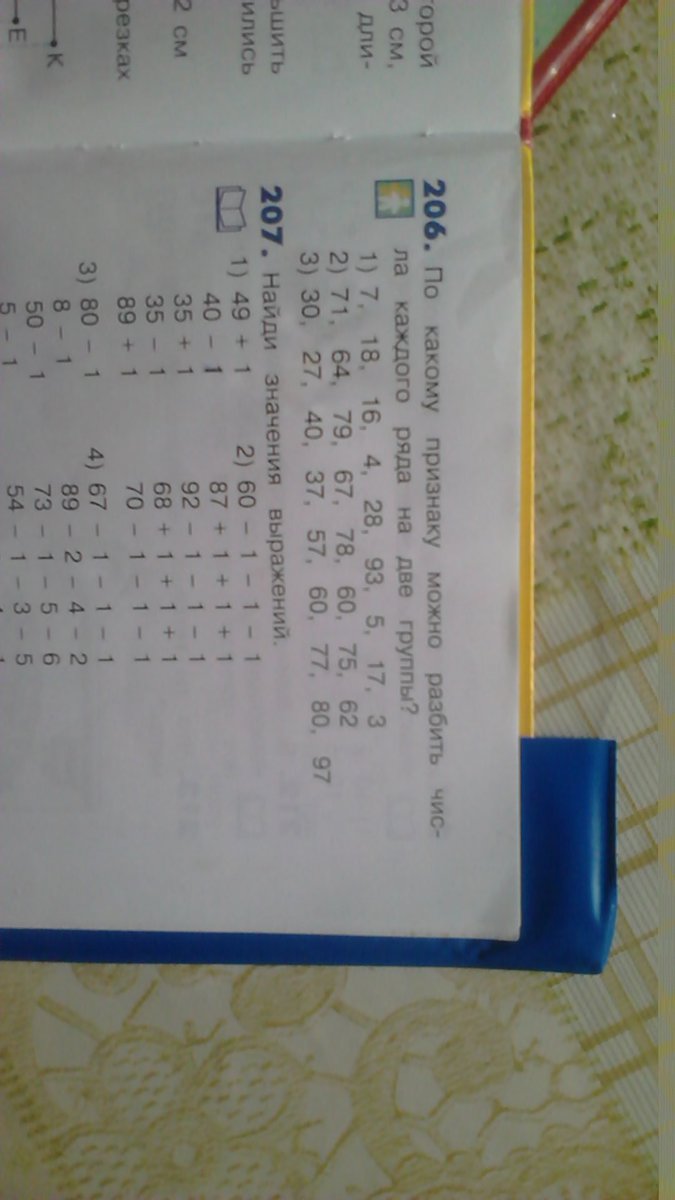 торой
3 см,
дли-
ьшить
ились
2 см
резках
K
E
206. По какому признаку можно разбить чис-
ла каждого ряда на две группы?
1) 7, 18, 16, 4, 28, 93, 5, 17, 3
2) 71, 64, 79, 67, 78, 60, 75, 62
3) 30, 27, 40, 37, 57, 60, 77, 80, 97
207. Найди значения выражений.
1) 49 + 1
40 − 1
35 + 1
35 − 1
89 + 1
2) 60 − 1 − 1 − 1
87 + 1 + 1 + 1
92 − 1 − 1 − 1
68 + 1 + 1 + 1
70 − 1 − 1 − 1
3) 80 − 1
8 − 1
50 − 1
5 − 1
4) 67 − 1 − 1 − 1
89 − 2 − 4 − 2
73 − 1 − 5 − 6
54 − 1 − 3 − 5